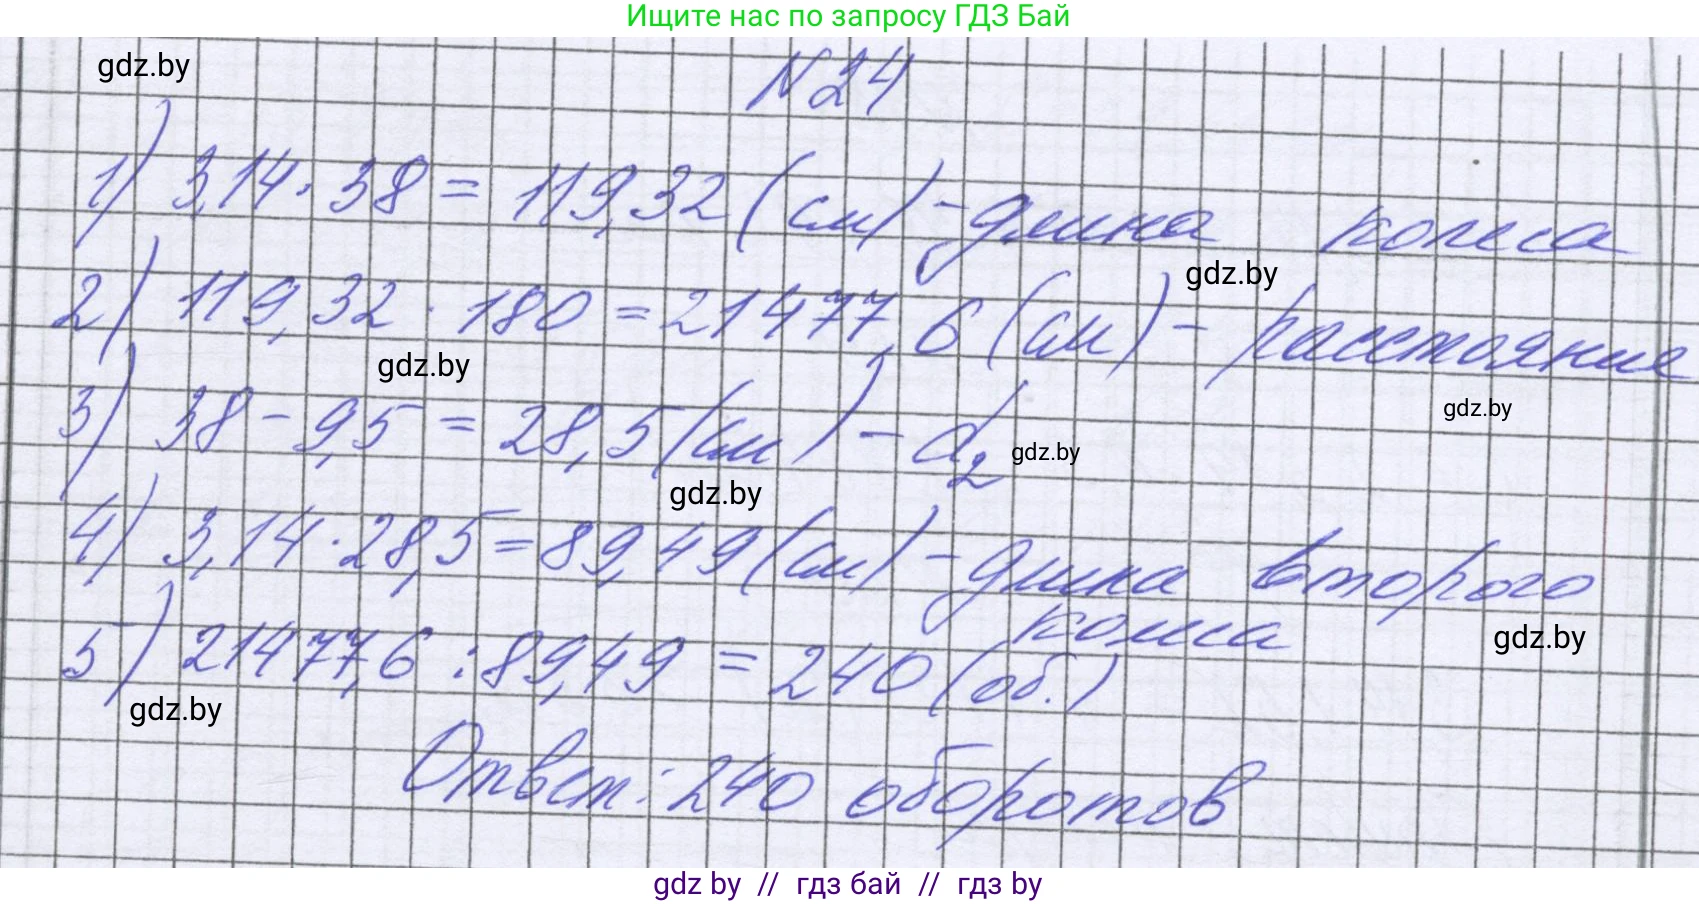 Ищите нас по запросу ГДЗ Бай
gdz.by
N24
1) 3,14 · 38 = 119,32 (см) - длина колеса
gdz.by
2) 119,32 · 180 = 21477,6 (см) - расстояние
gdz.by
gdz.by
3) 38 - 9,5 = 28,5 (см) - d2
gdz.by
gdz.by
4) 3,14 · 28,5 = 89,49 (см) - длина второго
колеса
gdz.by
5) 21477,6 : 89,49 = 240 (об.)
gdz.by
Ответ: 240 оборотов
gdz by // гдз бай // гдз by